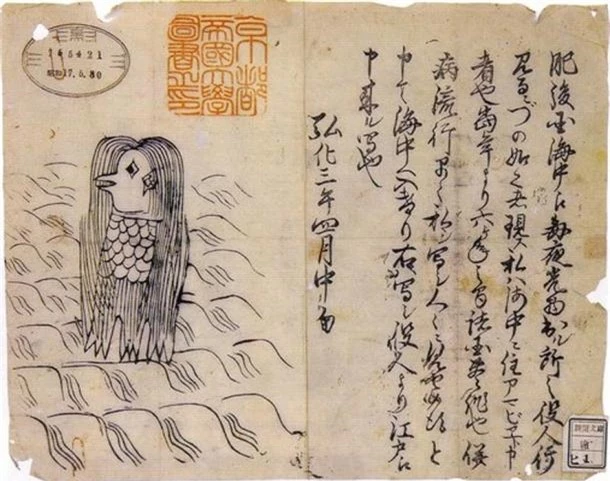 肥後国海中え毎夜光物出ル所之役人行
見るニづの如く者現ス私ハ海中ニ住アマビヱト申
者也当年より六ヶ年之間諸国豊作也併
病流行早々私シ写シ人々ニ見せ候得と
申て海中へ入けり右写シ役人より江戸え
申来ル写也
弘化三年四月中旬
京都
帝國大學
圖書之印
新聞文庫